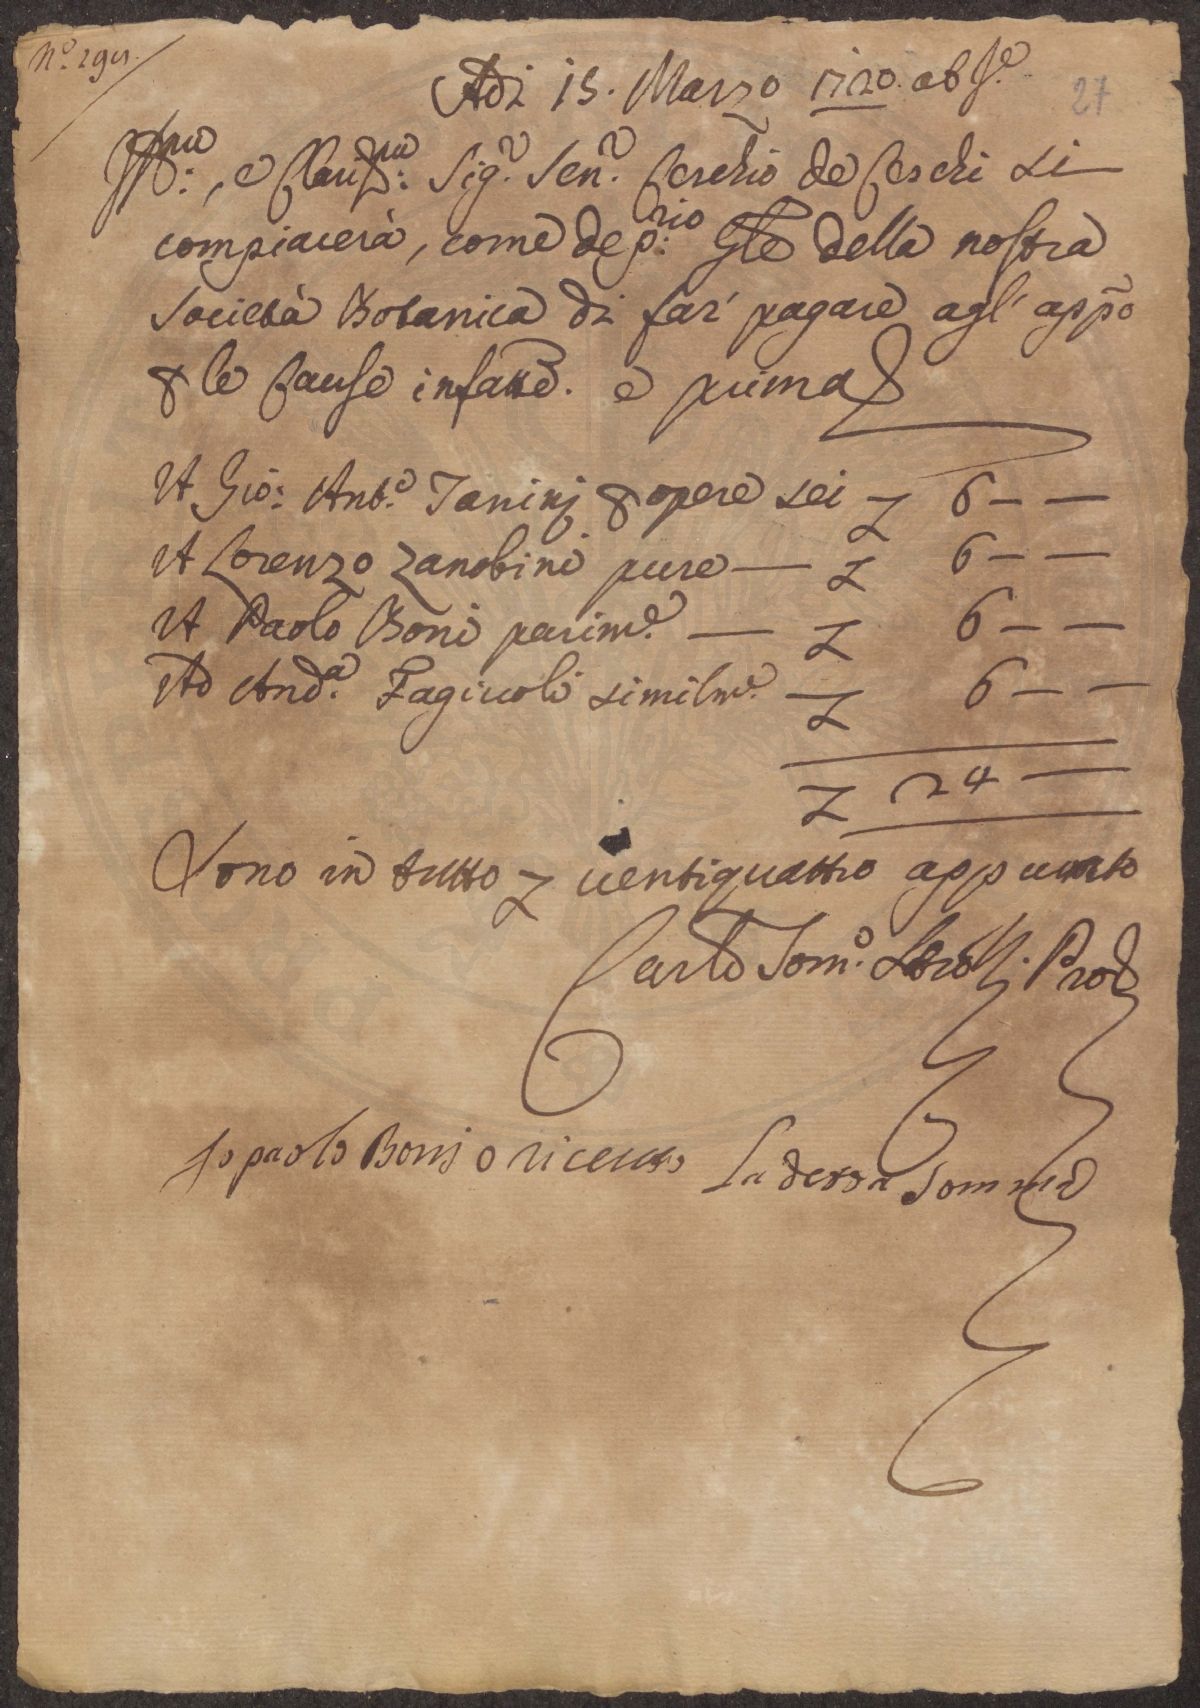 27
Adi 15. Marzo 1720. ab Je.
Illmo:, e Clariſsmo: Sigr. Senr. Cerchio de Cerchi si
compiacerà, come deprio: Gle della nostra
Società Botanica di far' pagare agl' appo
& le cause infatte. e prima
A Gio: Anto. Tanini & opere sei — 6 — —
A Lorenzo Zanobini pure — 6 — —
A Paolo Boni parime. — 6 — —
Ad Anda. Fagiuoli similme. — 6 — —
24 —
Sono in tutto ventiquattro appunto
Carlo Tomo. Prore
Io paolo Boni o riceuto la detta Somma